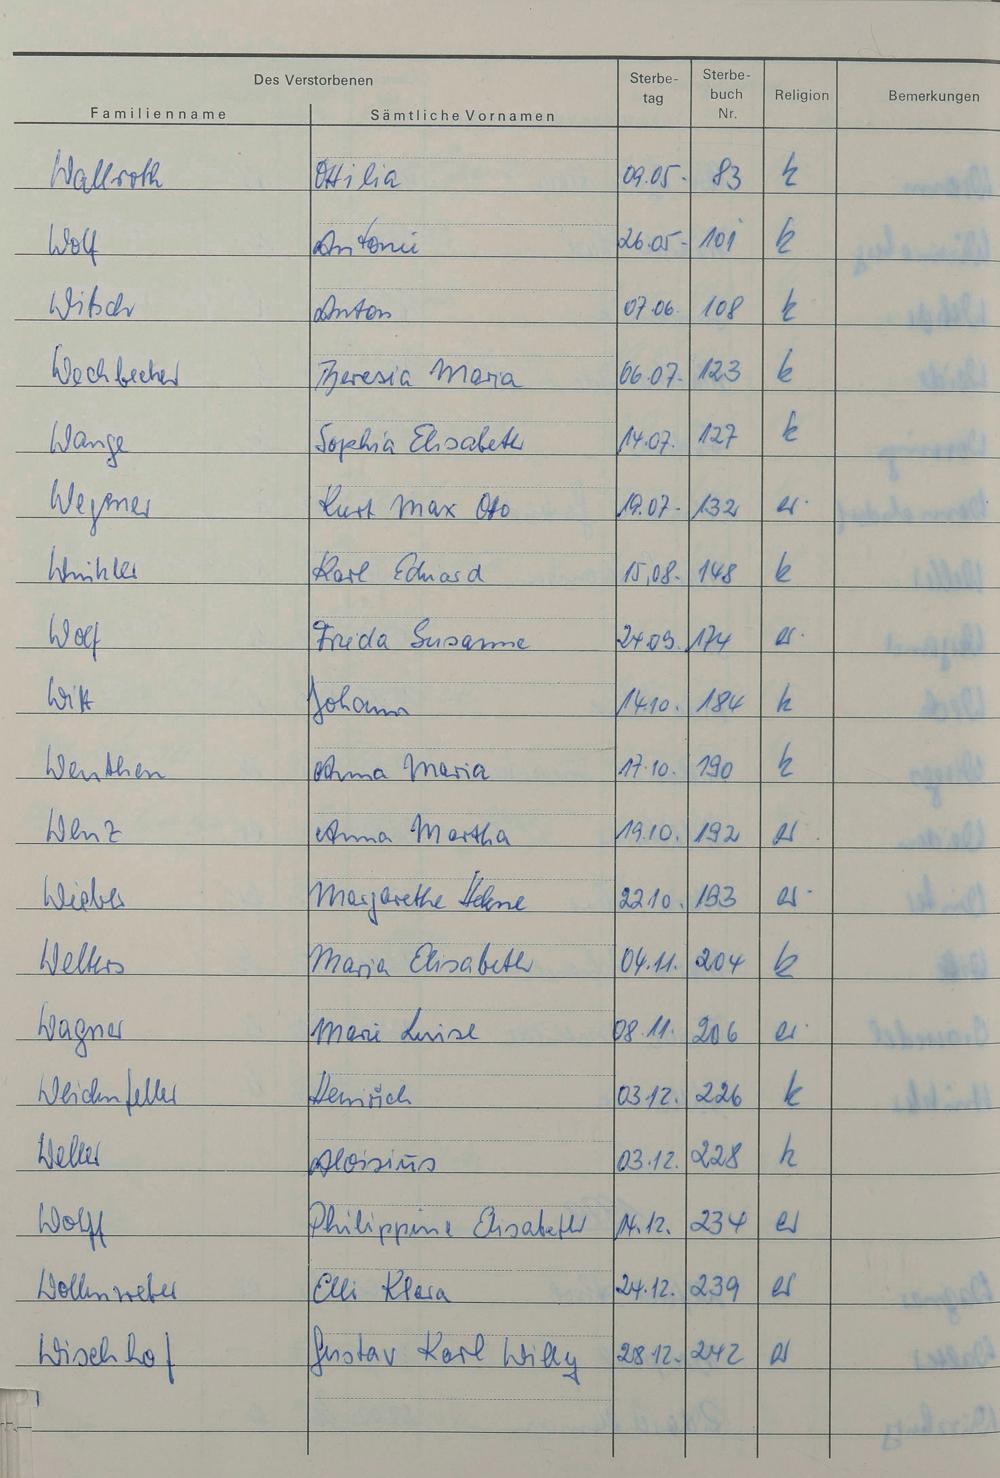 Des Verstorbenen
Familienname Sämtliche Vornamen Sterbe-tag Sterbe-buch Nr. Religion Bemerkungen
Wallroth Ottilia 09.05. 83 k
Wolf Antonie 26.05. 101 k
Witsch Anton 07.06. 108 k
Wechbecher Theresia Maria 06.07. 123 k
Wange Sophia Elisabeth 14.07. 127 k
Wegner Kurt Max Otto 19.07. 132 ev.
Winkler Karl Eduard 15.08. 148 k
Wolf Frieda Susanne 24.09. 174 ev.
Witt Johann 14.10. 184 k
Wenthen Anna Maria 17.10. 190 k
Wenz Anna Martha 19.10. 192 ev.
Wieber Margarethe Helene 22.10. 193 ev.
Welters Maria Elisabeth 04.11. 204 k
Wagner Marie Luise 08.11. 206 ev.
Weidenfeller Heinrich 03.12. 226 k
Weller Aloisius 03.12. 228 k
Wolff Philippine Elisabeth 14.12. 234 ev
Wollenweber Elli Klara 24.12. 239 ev
Wischhof Gustav Karl Willy 28.12. 242 ev